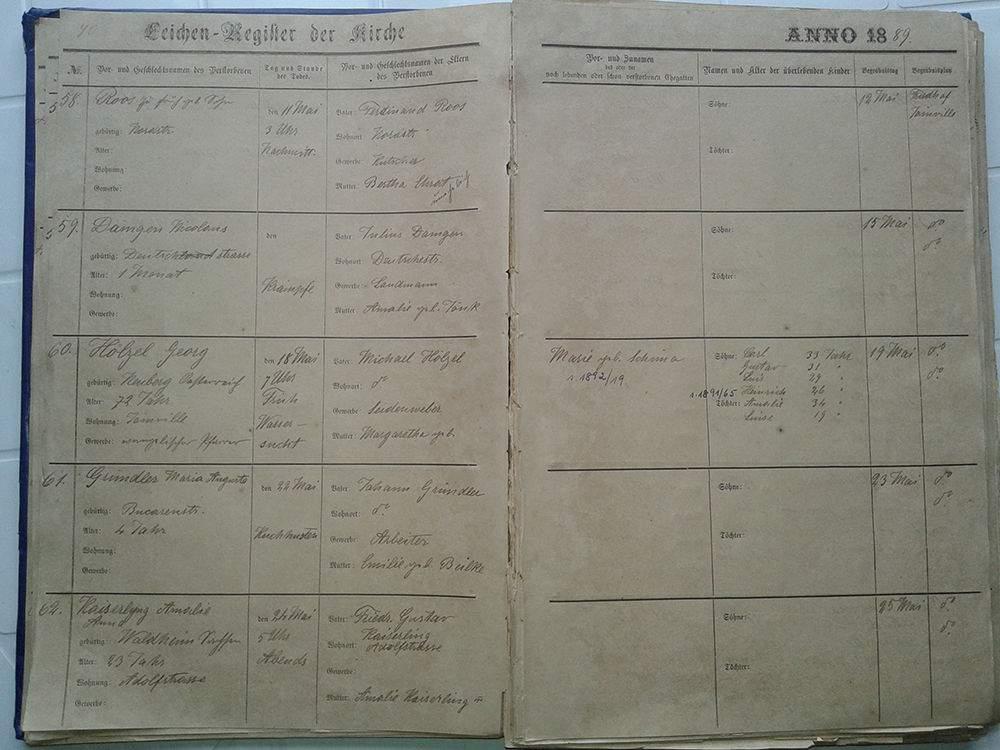 40
Leichen-Register der Kirche
ANNO 1889.
No.
Vor- und Geschlechtsnamen des Verstorbenen
Tag und Stunde
des Todes.
Vor- und Geschlechtsnamen der Eltern
des Verstorbenen
Vor- und Zunamen
des oder der
noch lebenden oder schon verstorbenen Ehegatten
Namen und Alter der überlebenden Kinder
Begräbnißtag
Begräbnißplatz
58. Roos zu früh geb. Sohn
gebürtig: Nordstr.
Alter:
Wohnung:
Gewerbe:
den 11 Mai
3 Uhr
Nachmitt.
Vater: Ferdinand Roos
Wohnort: Nordstr.
Gewerbe: Kutscher
Mutter: Bertha
Söhne:
Töchter:
12 Mai
Friedhof
Joinville
59. Damgen Nicolaus
gebürtig: Deutschestrasse
Alter: 1 Monat
Wohnung:
Gewerbe:
den
Krämpfe
Vater: Julius Damgen
Wohnort: Deutschestr.
Gewerbe: Landmann
Mutter: Amalie geb. Tönsk
Söhne:
Töchter:
15 Mai
do
do
60. Hölzel Georg
gebürtig: Oesterreich
Alter: 72 Jahr
Wohnung: Joinville
Gewerbe: evangelischer Pfarrer
den 18 Mai
7 Uhr
Früh
Wasser-
sucht
Vater: Michael Hölzel
Wohnort: do
Gewerbe: Seidenweber
Mutter: Margaretha geb.
Marie geb. Schima
1892/19.
Söhne: Carl 33 Jahr
Gustav 31 "
Luis 29 "
1891/65 Heinrich 26 "
Töchter: Amalie 34 "
Luise 19 "
19 Mai
do
do
61. Gründler Maria Auguste
gebürtig: Bucareinstr.
Alter: 4 Jahr
Wohnung:
Gewerbe:
den 22 Mai
Keuchhusten
Vater: Johann Gründler
Wohnort: do
Gewerbe: Arbeiter
Mutter: Emilie geb. Beilke
Söhne:
Töchter:
23 Mai
do
do
62. Kaiserlyng Amalie
Anna
gebürtig: Waldheim Sachsen
Alter: 23 Jahr
Wohnung: Adolfstrasse
Gewerbe:
den 24 Mai
5 Uhr
Abends
Vater: Friedr. Gustav
Kaiserling
Wohnort: Adolfstrasse
Gewerbe:
Mutter: Amalie Kaiserling
Söhne:
Töchter:
25 Mai
do
do